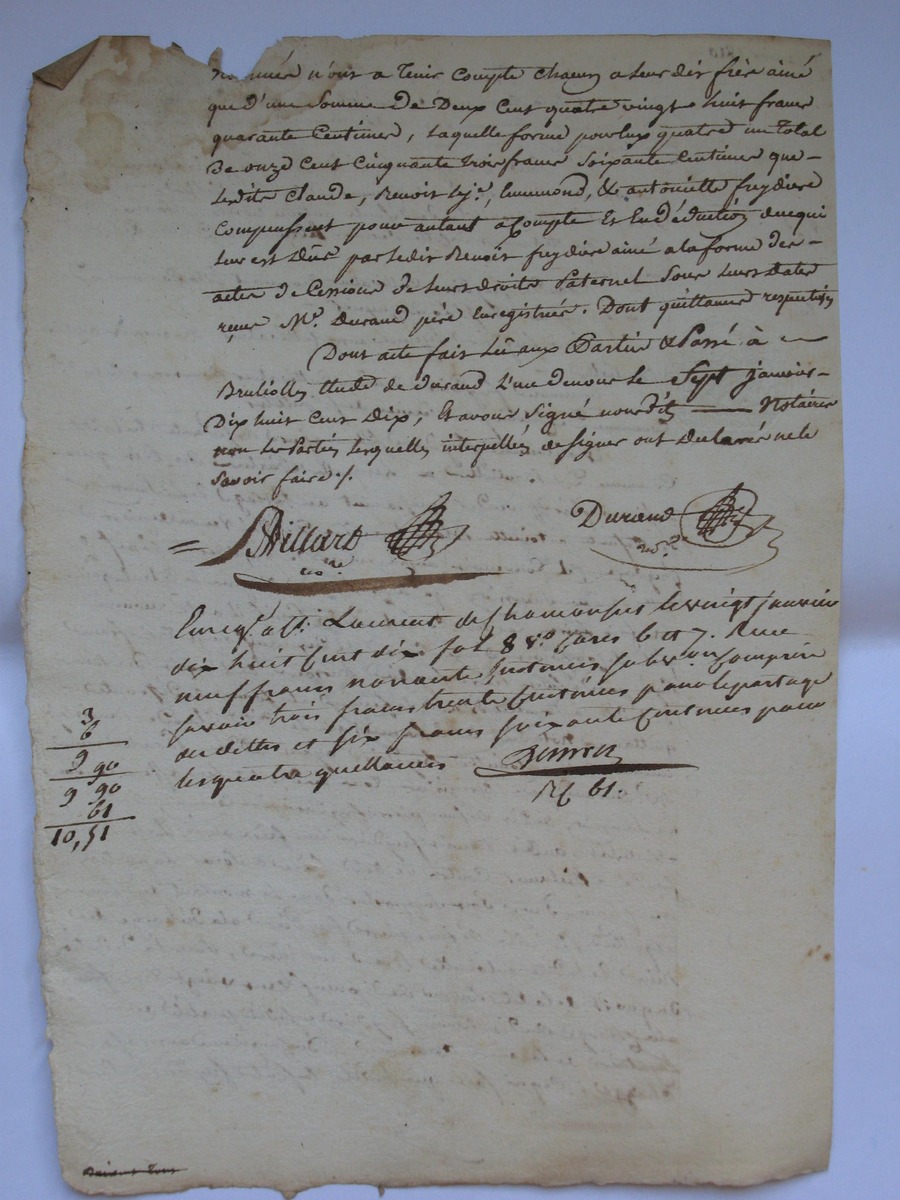 nommés n'ont a Tenir Compte Chacun a leur dit frère ainé
que d'une Somme de Deux Cent quatre vingt huit francs
quarante Centimes, laquelle forme pour lux quatre un Total
de onze Cent Cinquante trois francs Soixante Centimes que
Lesdits Claude, Benoit Lje., Emmond, & antoinette freydiere
Compensent pour autant a Compte Et En déduction de ce qui
leur est Dû par ledit Benoit freydiere ainé a la forme des
actes de Cession de leurs droits Paternel Sous leurs Dates
reçus Me. Durand père Enregistrés. Dont quittances respectives
Dont acte fait Lû aux Parties & Passé à
Brullioles Etude de Durand L'un de nous le Sept janvier
Dix huit Cent Dix, Et avons Signé nousdits Notaires
non les Parties lesquelles interpellées de signer ont Declarés ne le
Savoir faire /.
Billard
Durand
nore.
Enregé. a St. Laurent de Chamousset le vingt janvier
dix huit Cent dix fol 8 vo. Cases 6 et 7. Reçu
neuf francs nonante Centimes subvon. Comprise
savoir trois francs trente Centimes pour le partage
des dettes et six francs soixante Centimes pour
les quatre quittances
3
6
9 90
9 90
61
10,51
61.